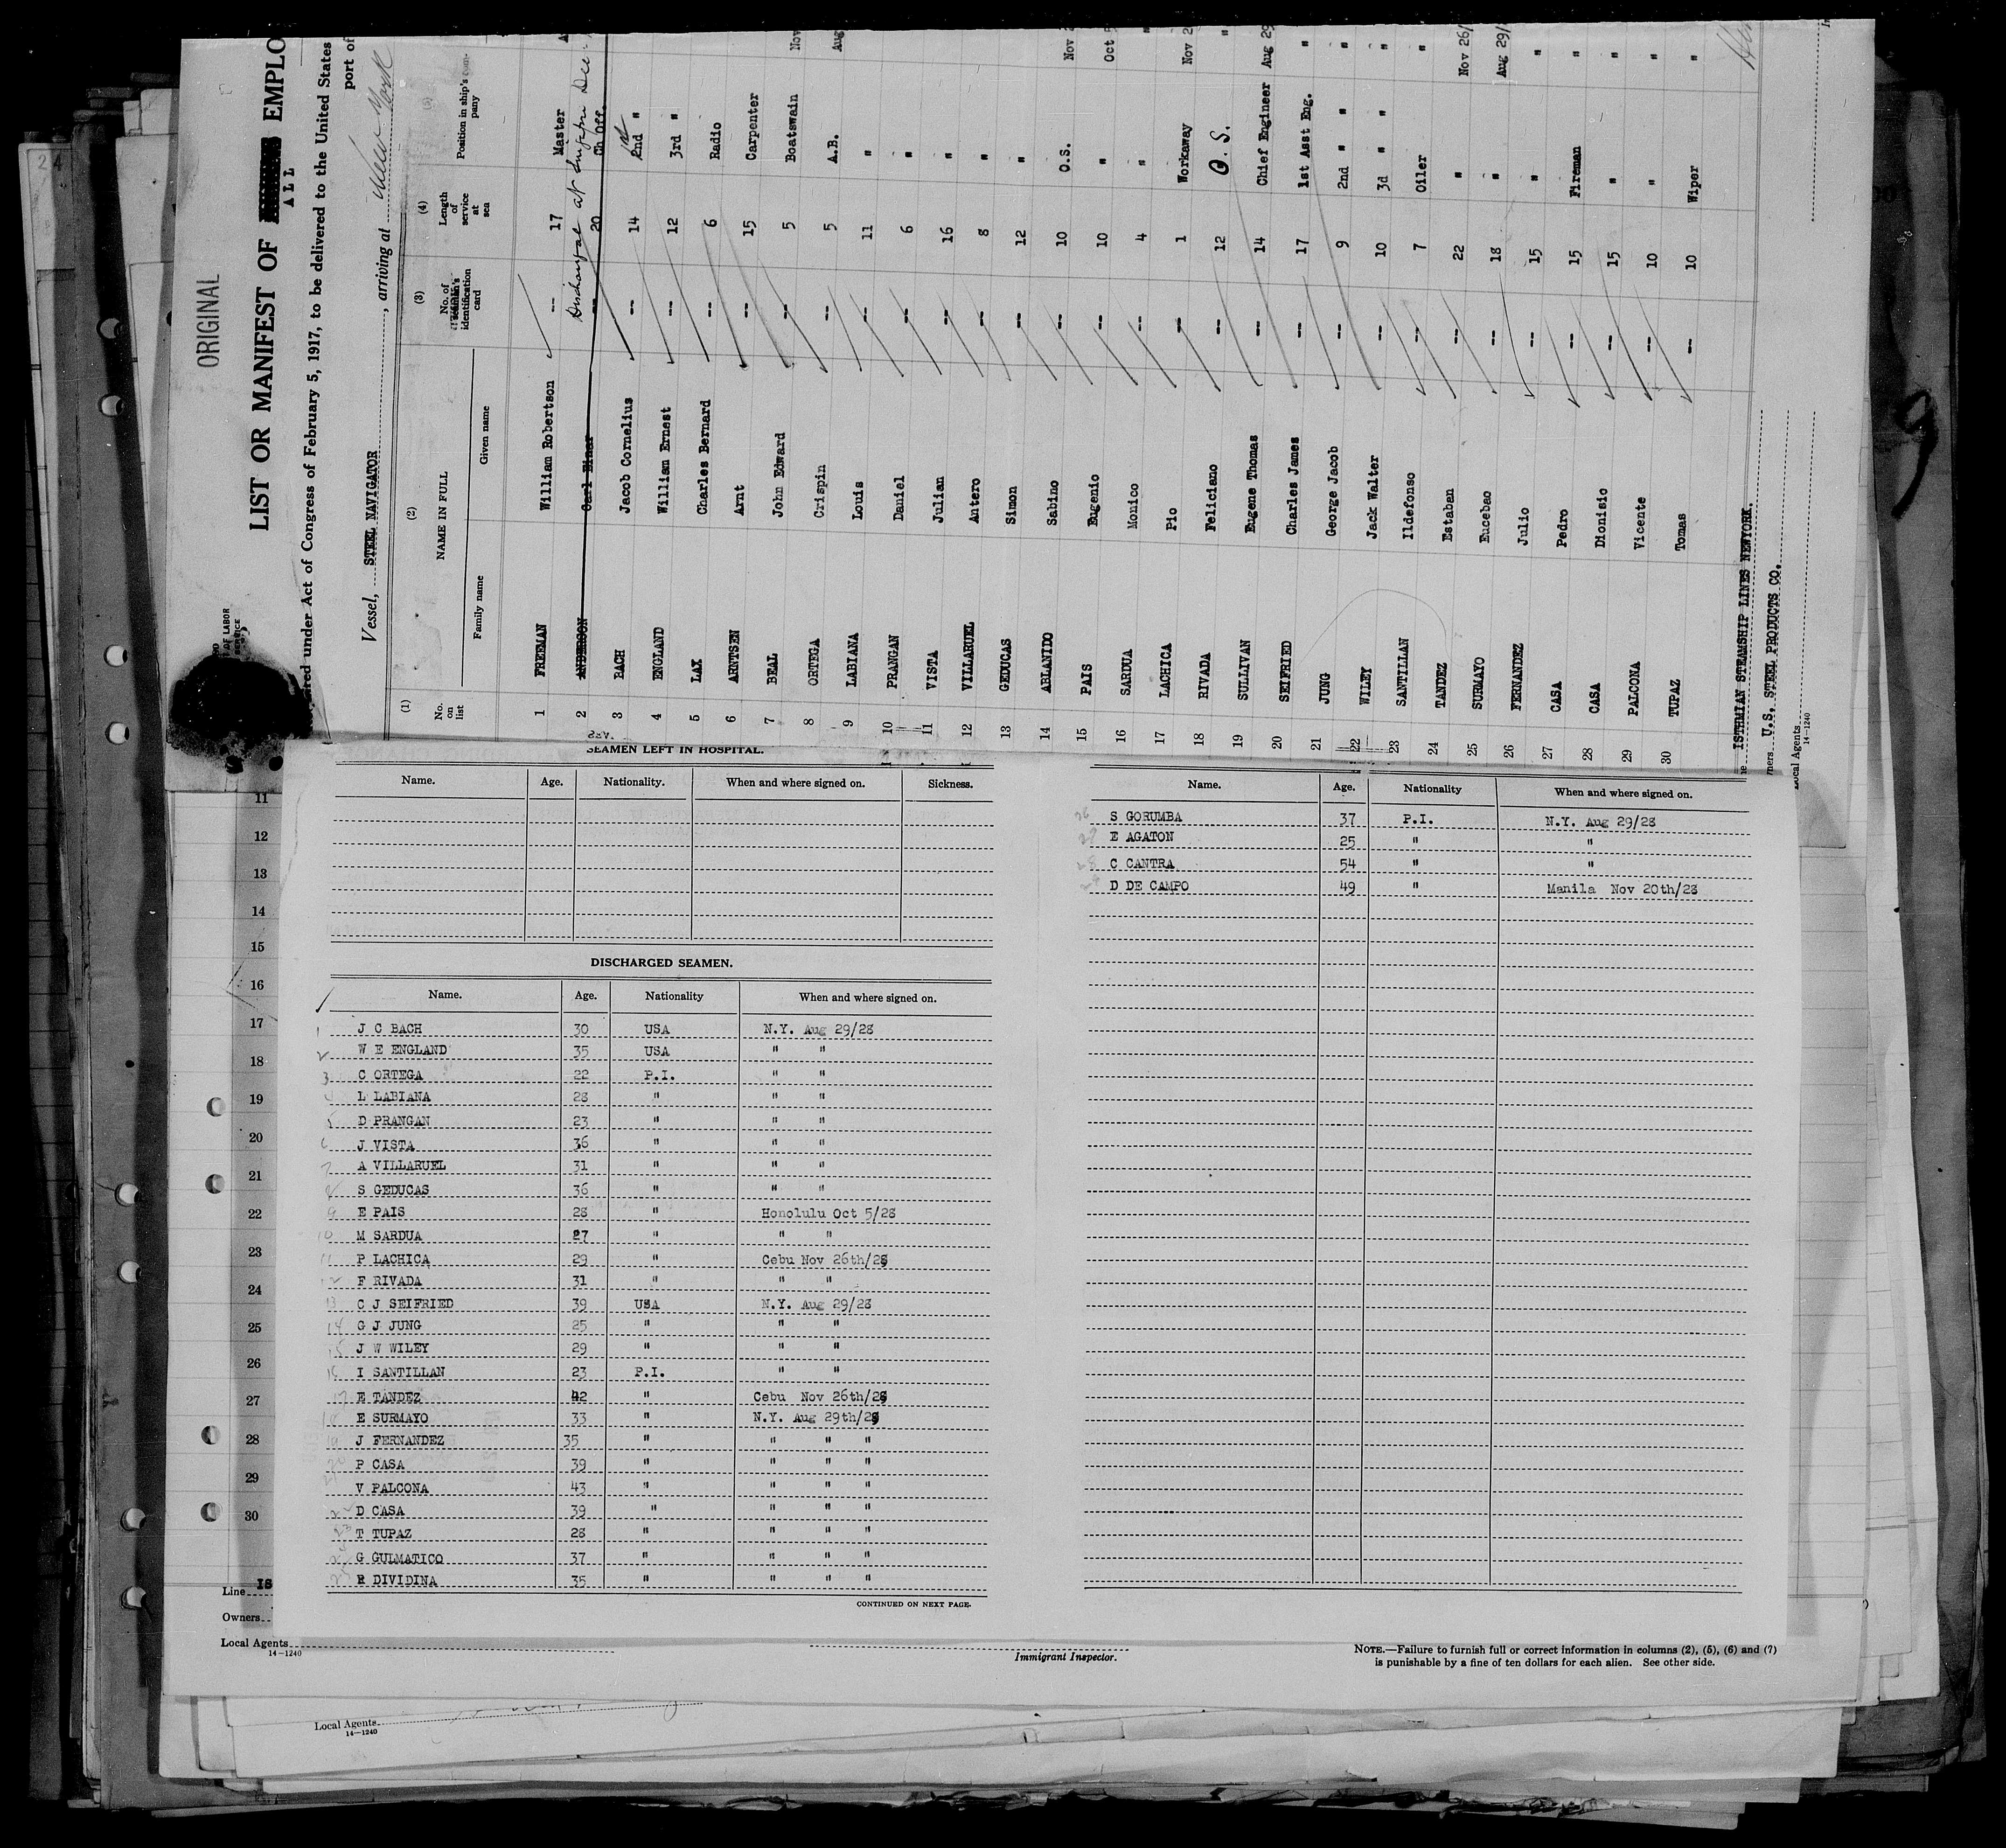 ORIGINAL
LIST OR MANIFEST OF EMPLO
ALL
under Act of Congress of February 5, 1917, to be delivered to the United States
port of
Vessel, STEEL NAVIGATOR, arriving at New York
(1) (2) (3) (4)
No. on list NAME IN FULL No. of identification card Length of service at sea Position in ship's company
Family name Given name
1 FREEMAN William Robertson -- 17 Master
2 ANDERSON Carl Einar -- 20 Ch Off.
Discharged at
3 BACH Jacob Cornelius -- 14 1st 2nd "
4 ENGLAND William Ernest -- 12 3rd "
5 LAX Charles Bernard -- 6 Radio
6 ARNTSEN Arnt -- 15 Carpenter
7 BEAL John Edward -- 5 Boatswain Nov
8 ORTEGA Crispin -- 5 A.B. Aug
9 LABIANA Louis -- 11 "
10 PRANGAN Daniel -- 6 "
11 VISTA Julian -- 16 "
12 VILLARUEL Antero -- 8 "
13 GEDUCAS Simon -- 12 "
14 ABLANIDO Sabino -- 10 O.S. Nov 2
15 PAIS Eugenio -- 10 " Oct 5
16 SARDUA Monico -- 4 " "
17 LACHICA Pio -- 1 Workaway Nov 2
18 RIVADA Feliciano -- 12 O.S. "
19 SULLIVAN Eugene Thomas -- 14 Chief Engineer Aug 29
20 SEIFRIED Charles James -- 17 1st Asst Eng. "
21 JUNG George Jacob -- 9 2nd " " "
22 WILEY Jack Walter -- 10 3d " " "
23 SANTILLAN Ildefonso -- 7 Oiler "
24 TANDEZ Estaban -- 22 " Nov 26/
25 SURMAYO Eucebao -- 18 " Aug 29/
26 FERNANDEZ Julio -- 15 " "
27 CASA Pedro -- 15 Fireman "
28 CASA Dionisio -- 15 " "
29 PALCONA Vicente -- 10 " "
30 TUPAZ Tomas -- 10 Wiper "
ISTHMIAN STEAMSHIP LINES NEWYORK.
U.S. STEEL PRODUCTS CO.
Local Agents
14-1240
SEAMEN LEFT IN HOSPITAL.
Name. Age. Nationality. When and where signed on. Sickness.
DISCHARGED SEAMEN.
Name. Age. Nationality When and where signed on.
1 J C BACH 30 USA N.Y. Aug 29/28
2 W E ENGLAND 35 USA " "
3 C ORTEGA 22 P.I. " "
4 L LABIANA 28 " " "
5 D PRANGAN 23 " " "
6 J VISTA 36 " " "
7 A VILLARUEL 31 " " "
8 S GEDUCAS 36 " " "
9 E PAIS 28 " Honolulu Oct 5/28
10 M SARDUA 27 " " "
11 P LACHICA 29 " Cebu Nov 26th/28
12 F RIVADA 31 " " "
13 C J SEIFRIED 39 USA N.Y. Aug 29/28
14 G J JUNG 25 " " "
15 J W WILEY 29 " " "
16 I SANTILLAN 23 P.I. " "
17 E TANDEZ 42 " Cebu Nov 26th/28
18 E SURMAYO 33 " N.Y. Aug 29th/28
19 J FERNANDEZ 35 " " " "
20 P CASA 39 " " " "
21 V PALCONA 43 " " " "
22 D CASA 39 " " " "
23 T TUPAZ 28 " " " "
24 G GULMATICO 37 " " " "
25 R DIVIDINA 35 " " " "
CONTINUED ON NEXT PAGE.
Name. Age. Nationality When and where signed on.
26 S GORUMBA 37 P.I. N.Y. Aug 29/28
27 E AGATON 25 " "
28 C CANTRA 54 " "
29 D DE CAMPO 49 " Manila Nov 20th/28
11
12
13
14
15
16
17
18
19
20
21
22
23
24
25
26
27
28
29
30
Line IS
Owners
Local Agents
14-1240
Immigrant Inspector.
NOTE.—Failure to furnish full or correct information in columns (2), (5), (6) and (7)
is punishable by a fine of ten dollars for each alien. See other side.
Local Agents
14-1240